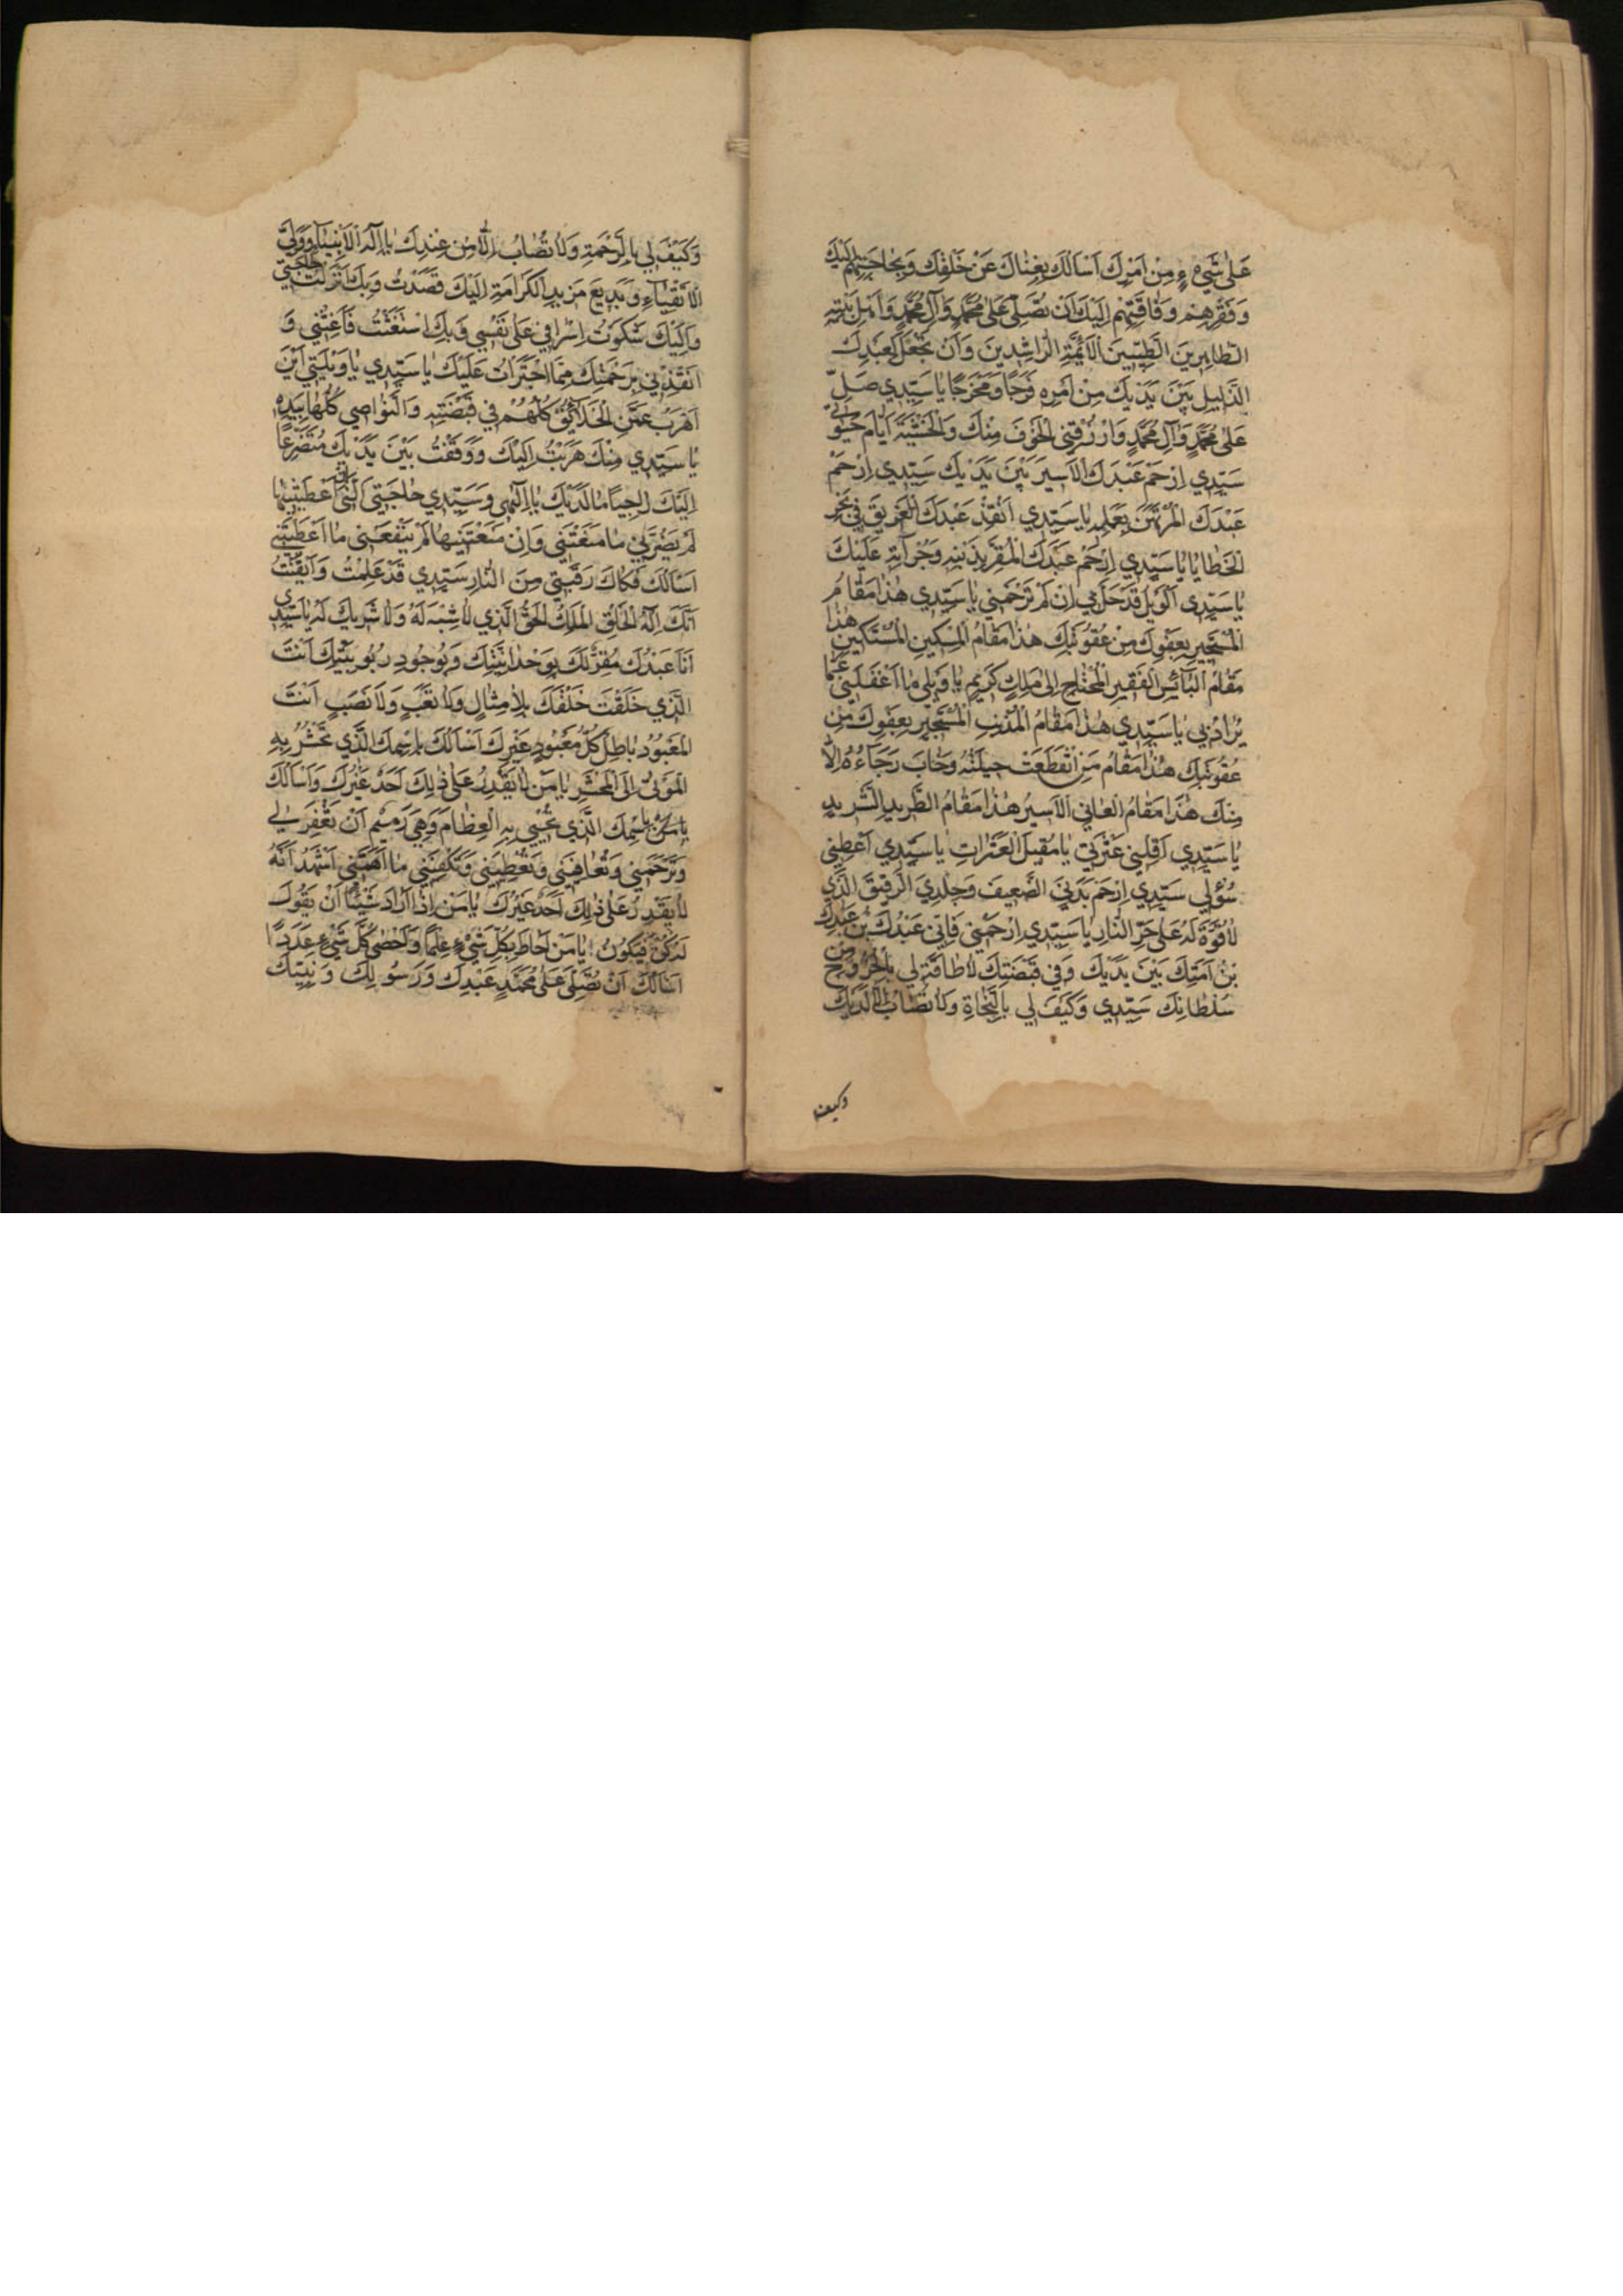 عَلىٰ شَيْءٍ مِنْ اَمْرِكَ اَسْاَلُكَ بِغِنٰاكَ عَنْ خَلْقِكَ وَبِحٰاجَتِهِمْ اِلَيْكَ
وَفَقْرِهِمْ وَفٰاقَتِهِمْ اِلَيْكَ اَنْ تُصَلِّيَ عَلىٰ مُحَمَّدٍ وَآلِ مُحَمَّدٍ وَاَهْلِ بَيْتِهِ
الطّٰاهِرِينَ الطَّيِّبِينَ الْاَئِمَّةِ الرّٰاشِدِينَ وَاَنْ تَجْعَلَ لِعَبْدِكَ
الذَّلِيلِ بَيْنَ يَدَيْكَ مِنْ اَمْرِهِ فَرَجًا وَمَخْرَجًا يٰا سَيِّدِي صَلِّ
عَلىٰ مُحَمَّدٍ وَآلِ مُحَمَّدٍ وَارْزُقْنِي الْخَوْفَ مِنْكَ وَالْخَشْيَةَ اَيّٰامَ حَيٰوتِي
سَيِّدِي اِرْحَمْ عَبْدَكَ الْاَسِيرَ بَيْنَ يَدَيْكَ سَيِّدِي اِرْحَمْ
عَبْدَكَ الْمُرْتَهَنَ بِعَمَلِهِ يٰا سَيِّدِي اَنْقِذْ عَبْدَكَ الْغَرِيقَ فِي بَحْرِ
الْخَطٰايٰا يٰا سَيِّدِي اِرْحَمْ عَبْدَكَ الْمُقِرَّ بِذَنْبِهِ وَجُرْأَتِهِ عَلَيْكَ
يٰا سَيِّدِي اَلْوَيْلُ قَدْ حَلَّ بِي اِنْ لَمْ تَرْحَمْنِي يٰا سَيِّدِي هٰذٰا مَقٰامُ
الْمُسْتَجِيرِ بِعَفْوِكَ مِنْ عُقُوبَتِكَ هٰذٰا مَقٰامُ الْمِسْكِينِ الْمُسْتَكِينِ هٰذٰا
مَقٰامُ الْبٰائِسِ الْفَقِيرِ الْمُحْتٰاجِ اِلىٰ مَلِكٍ كَرِيمٍ يٰا وَيْلِي مٰا اَغْفَلَنِي عَمّٰا
يُرٰادُ بِي يٰا سَيِّدِي هٰذٰا مَقٰامُ الْمُذْنِبِ الْمُسْتَجِيرِ بِعَفْوِكَ مِنْ
عُقُوبَتِكَ هٰذٰا مَقٰامُ مَنِ انْقَطَعَتْ حِيلَتُهُ وَخٰابَ رَجٰاءُهُ اِلّٰا
مِنْكَ هٰذٰا مَقٰامُ الْعٰانِي الْاَسِيرِ هٰذٰا مَقٰامُ الطَّرِيدِ الشَّرِيدِ
يٰا سَيِّدِي اَقِلْنِي عَثْرَتِي يٰا مُقِيلَ الْعَثَرٰاتِ يٰا سَيِّدِي اَعْطِنِي
سُؤْلِي سَيِّدِي اِرْحَمْ بَدَنِيَ الضَّعِيفَ وَجِلْدِيَ الرَّقِيقَ الَّذِي
لٰا قُوَّةَ لَهُ عَلىٰ حَرِّ النّٰارِ يٰا سَيِّدِي اِرْحَمْنِي فَاِنِّي عَبْدُكَ بْنُ عَبْدِكَ
بْنُ اَمَتِكَ بَيْنَ يَدَيْكَ وَفِي قَبْضَتِكَ لٰا طٰاقَةَ لِي بِالْخُرُوجِ مِنْ
سُلْطٰانِكَ سَيِّدِي وَكَيْفَ لِي بِالنَّجٰاةِ وَلٰا تُصٰابُ اِلّٰا لَدَيْكَ
وكيف
وَكَيْفَ لِي بِالرَّحْمَةِ وَلٰا تُصٰابُ اِلّٰا مِنْ عِنْدِكَ يٰا اِلٰهَ الْاَنْبِيٰاءِ وَوَلِيَّ
الْاَتْقِيٰاءِ وَبَدِيعَ مَزِيدِ الْكَرٰامَةِ اِلَيْكَ قَصَدْتُ وَبِكَ اَنْزَلْتُ حٰاجَتِي
وَاِلَيْكَ شَكَوْتُ اِسْرٰافِي عَلىٰ نَفْسِي وَبِكَ اسْتَغَثْتُ فَاَغِثْنِي وَ
اَنْقِذْنِي بِرَحْمَتِكَ مِمَّا اجْتَرَأْتُ عَلَيْكَ يٰا سَيِّدِي يٰا وَيْلَتِي اَيْنَ
اَهْرُبُ عَمَّنِ الْخَلٰائِقُ كُلُّهُمْ فِي قَبْضَتِهِ وَالنَّوٰاصِي كُلُّهٰا بِيَدِهِ
يٰا سَيِّدِي مِنْكَ هَرَبْتُ اِلَيْكَ وَوَقَفْتُ بَيْنَ يَدَيْكَ مُتَضَرِّعًا
اِلَيْكَ رٰاجِيًا مٰا لَدَيْكَ يٰا اِلٰهِي وَسَيِّدِي حٰاجَتِي الَّتِي اِنْ اَعْطَيْتَنِيهٰا
لَمْ يَضُرَّنِي مٰا مَنَعْتَنِي وَاِنْ مَنَعْتَنِيهٰا لَمْ يَنْفَعْنِي مٰا اَعْطَيْتَنِي
اَسْاَلُكَ فَكٰاكَ رَقَبَتِي مِنَ النّٰارِ سَيِّدِي قَدْ عَلِمْتُ وَاَيْقَنْتُ
اَنَّكَ اِلٰهُ الْخَلْقِ الْمَلِكُ الْحَقُّ الَّذِي لٰا شِبْهَ لَهُ وَلٰا شَرِيكَ لَهُ يٰا سَيِّدِي
اَنَا عَبْدُكَ مُقِرٌّ لَكَ بِوَحْدٰانِيَّتِكَ وَبِوُجُودِ رُبُوبِيَّتِكَ اَنْتَ
الَّذِي خَلَقْتَ خَلْقَكَ بِلٰا مِثٰالٍ وَلٰا تَعَبٍ وَلٰا نَصَبٍ اَنْتَ
الْمَعْبُودُ بٰاطِلٌ كُلُّ مَعْبُودٍ غَيْرِكَ اَسْاَلُكَ بِاسْمِكَ الَّذِي تَحْشُرُ بِهِ
الْمَوْتىٰ اِلَى الْمَحْشَرِ يٰا مَنْ لٰا يَقْدِرُ عَلىٰ ذٰلِكَ اَحَدٌ غَيْرُكَ وَاَسْاَلُكَ
بِاسْمِكَ الَّذِي تُحْيِي بِهِ الْعِظٰامَ وَهِيَ رَمِيمٌ اَنْ تَغْفِرَ لِي
وَتَرْحَمَنِي وَتُعٰافِيَنِي وَتُعْطِيَنِي وَتَكْفِيَنِي مٰا اَهَمَّنِي اَشْهَدُ اَنَّهُ
لٰا يَقْدِرُ عَلىٰ ذٰلِكَ اَحَدٌ غَيْرُكَ يٰا مَنْ اِذٰا اَرٰادَ شَيْئًا اَنْ يَقُولَ
لَهُ كُنْ فَيَكُونُ يٰا مَنْ اَحٰاطَ بِكُلِّ شَيْءٍ عِلْمًا وَاَحْصىٰ كُلَّ شَيْءٍ عَدَدًا
اَسْاَلُكَ اَنْ تُصَلِّيَ عَلىٰ مُحَمَّدٍ عَبْدِكَ وَرَسُولِكَ وَنَبِيِّكَ